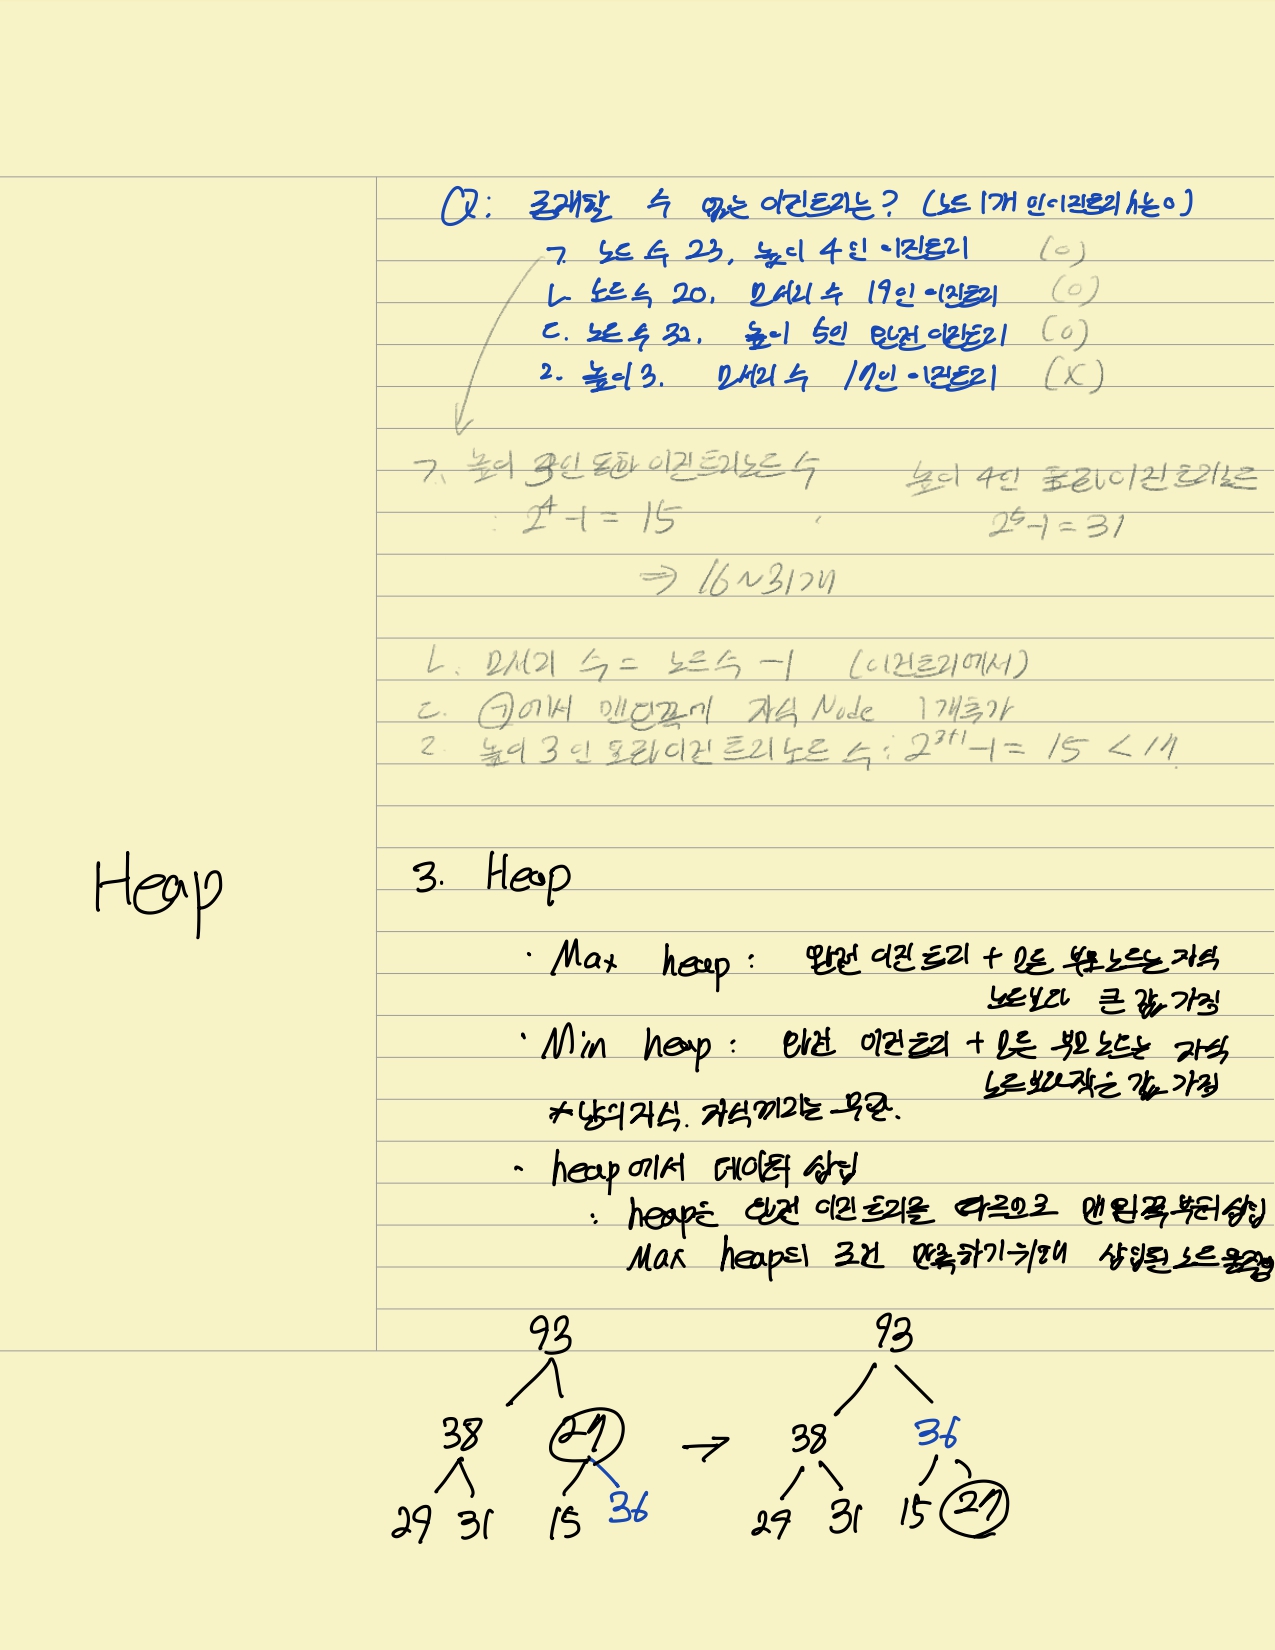 Q: 존재할 수 없는 이진트리는? (노드 1개 인 이진트리 h는 0)
ㄱ. 노드 수 23, 높이 4인 이진트리 (o)
ㄴ. 노드 수 20, 모서리 수 19인 이진트리 (o)
ㄷ. 노드 수 32, 높이 5인 완전 이진트리 (o)
ㄹ. 높이 3. 모서리 수 17인 이진트리 (x)
ㄱ. 높이 3인 포화 이진트리 노드 수 높이 4인 포화 이진트리 노드
: 2^4-1 = 15 2^5-1 = 31
⇒ 16~31개
ㄴ. 모서리 수 = 노드 수 -1 (이진트리에서)
ㄷ. ㄱ에서 맨 왼쪽에 자식 Node 1개 추가
ㄹ. 높이 3인 포화 이진트리 노드 수: 2^3+1 -1 = 15 < 17.
Heap 3. Heap
· Max heap : 완전 이진 트리 + 모든 부모 노드는 자식
노드보다 큰 값 가짐
· Min heap : 완전 이진 트리 + 모든 부모 노드는 자식
노드보다 작은 값 가짐
* 남의 자식. 자식끼리는 무관.
· heap에서 데이터 삽입
: heap은 완전 이진 트리를 따르므로 맨 왼쪽부터 삽입
Max heap의 조건 만족하기 위해 삽입된 노드 움직임
93 93
38 27 → 38 36
29 31 15 36 29 31 15 27